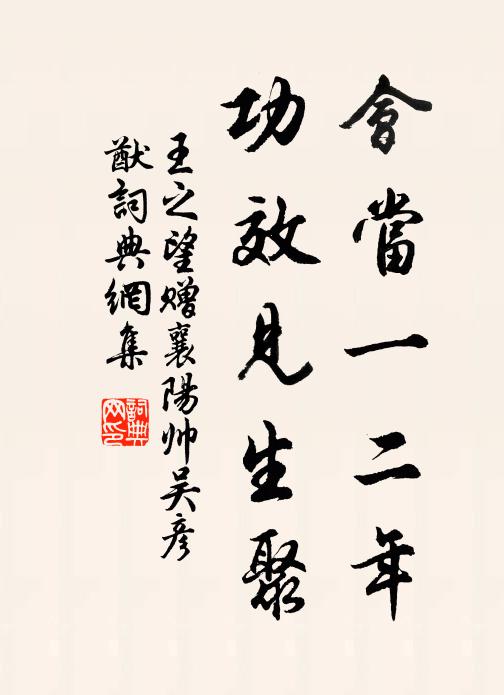 會當一二年
功效見生聚
王之望贈襄陽帅吴彦
猷詞典網集
詞典
网印